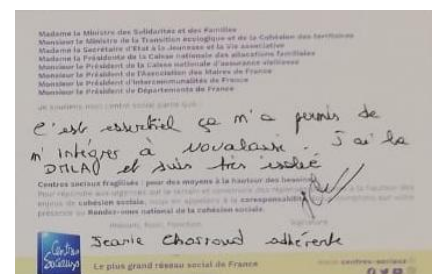 Madame la Ministre des Solidarités et des Familles
Monsieur le Ministre de la Transition écologique et de la Cohésion des territoires
Madame la Secrétaire d'Etat à la Jeunesse et la Vie associative
Madame la Présidente de la Caisse nationale des allocations familiales
Monsieur le Président de la Caisse nationale d'assurance vieillesse
Monsieur le Président de l'Association des Maires de France
Monsieur le Président d'Intercommunalités de France
Monsieur le Président de Départements de France
Je soutiens mon centre social parce que :
C'est essentiel ça m'a permis de
m'intégrer à Novalaise. J'ai la
DMLA et suis très isolée
Centres sociaux fragilisés : pour des moyens à la hauteur des besoins
Pour répondre aux urgences sur le terrain et construire des réponses à la hauteur des
enjeux de cohésion sociale, nous en appelons à la coresponsabilité sur votre
présence au Rendez-vous national de la cohésion sociale.
Prénom, Nom, Fonction Signature
Jeanie adhérente
Centres
Sociaux
Le plus grand réseau social de France
www.centres-sociaux.fr